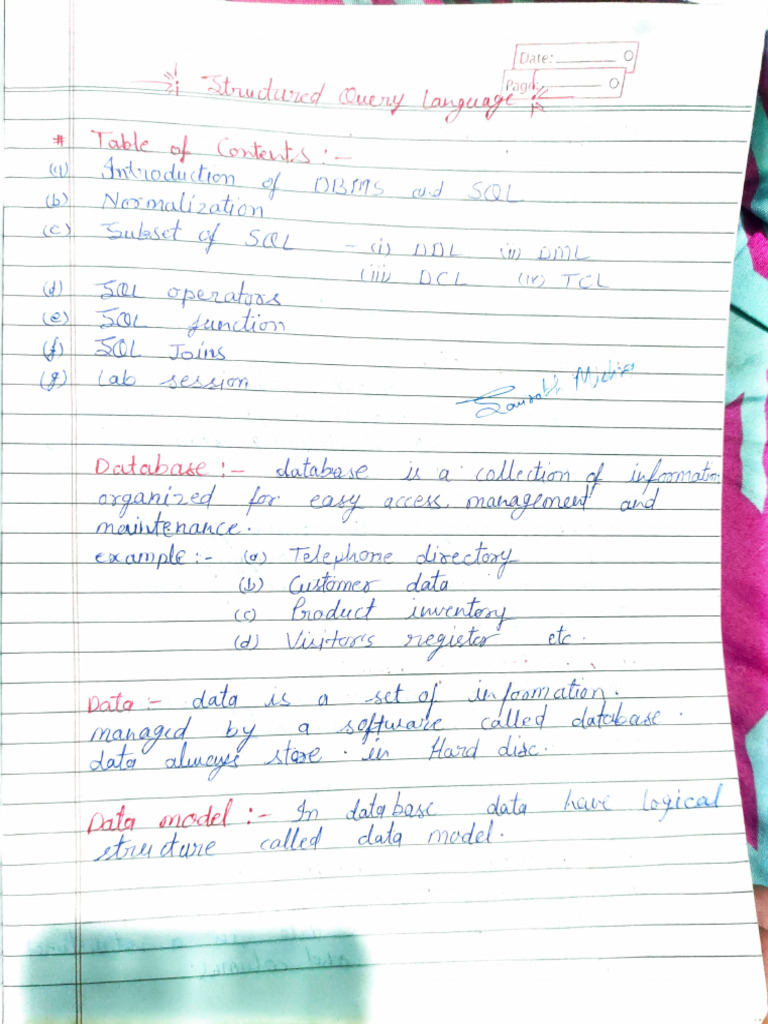 Date:
Page:
Structured Query Language
# Table of Contents :-
(a) Introduction of DBMS and SQL
(b) Normalization
(c) Subset of SQL - (i) DDL (ii) DML
(iii) DCL (iv) TCL
(d) SQL operators
(e) SQL function
(f) SQL Joins
(g) Lab session
Database :- database is a collection of information
organized for easy access, management and
maintenance.
example :- (a) Telephone directory
(b) Customer data
(c) Product inventory
(d) Visitor's register etc.
Data :- data is a set of information.
managed by a software called database.
data always store in Hard disc.
Data model :- In database data have logical
structure called data model.